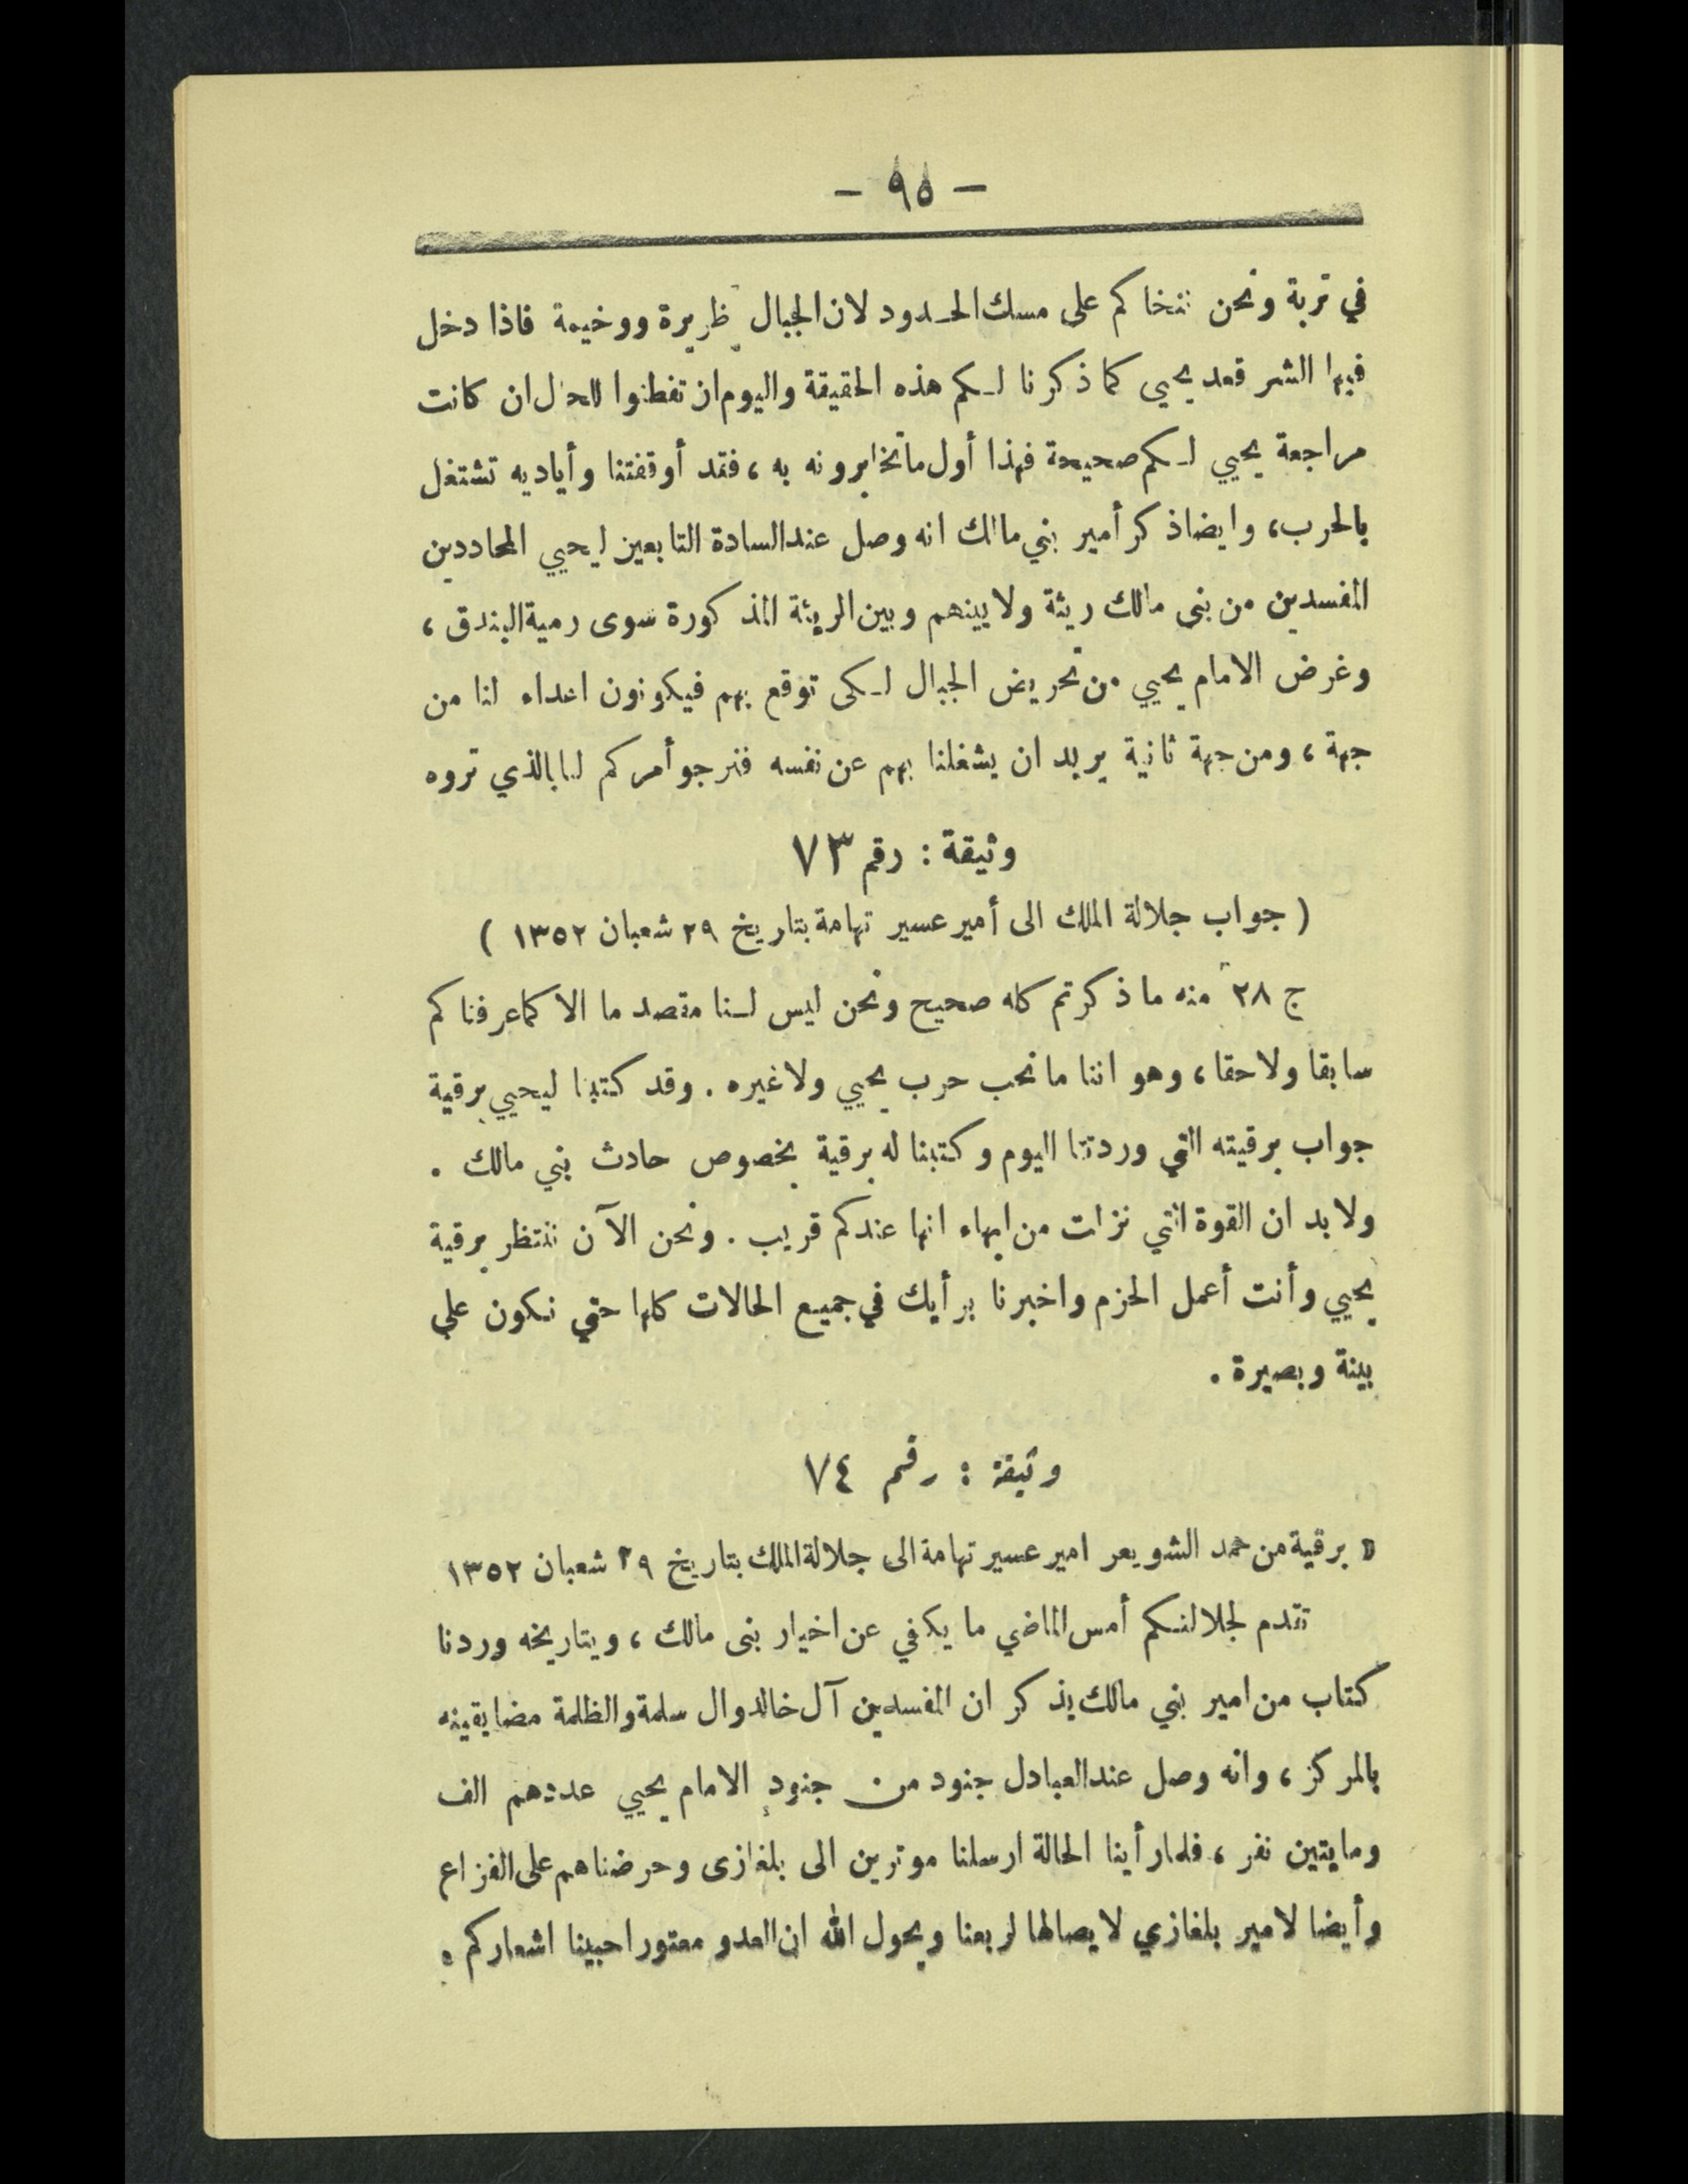 — ٩٥ —
في تربة ونحن نخاكم على مسك الحدود لان الجبال خطيرة ووخيمة فاذا دخل
فيها الشر قعد يحيى كما ذكرنا لكم هذه الحقيقة واليوم ان تفطنوا للحال ان كانت
مراجعة يحيي لكم صحيحة فهذا أول ما تخابرونه به ، فقد أوقفتنا وأياديه تشتغل
بالحرب ، وايضا ذكر أمير بني مالك انه وصل عند السادة التابعين ليحيي المحاددين
المفسدين من بنى مالك ريئة ولا بينهم وبين الريئة المذكورة سوى رمية البندق ،
وغرض الامام يحيي من تحريض الجبال لكى توقع بهم فيكونون اعداء لنا من
جهة ، ومن جهة ثانية يريد ان يشغلنا بهم عن نفسه فنرجو أمركم لنا بالذي تروه
وثيقة : رقم ٧٣
( جواب جلالة الملك الى أمير عسير تهامة بتاريخ ٢٩ شعبان ١٣٥٢ )
ج ٢٨ منه ما ذكرتم كله صحيح ونحن ليس لنا مقصد ما الا كما عرفناكم
سابقا ولاحقا ، وهو اننا ما نحب حرب يحيي ولا غيره . وقد كتبنا ليحيي برقية
جواب برقيته التي وردتنا اليوم وكتبنا له برقية بخصوص حادث بني مالك .
ولا بد ان القوة التي نزلت من ابهاء انها عندكم قريب . ونحن الآن ننتظر برقية
يحيي وأنت أعمل الحزم واخبرنا برأيك في جميع الحالات كلها حتي نكون علي
بينة وبصيرة .
وثيقة : رقم ٧٤
برقية من حمد الشويعر امير عسير تهامة الى جلالة الملك بتاريخ ٢٩ شعبان ١٣٥٢
تقدم لجلالتكم أمس الماضي ما يكفي عن اخبار بنى مالك ، وبتاريخه وردنا
كتاب من امير بني مالك يذكر ان المفسدين آل خالد وال سلمة والظلمة مضايقينه
بالمركز ، وانه وصل عند العبادل جنود من جنود الامام يحيي عددهم الف
ومايتين نفر ، فلما رأينا الحالة ارسلنا موترين الى بلغازى وحرضناهم على الفزاع
وأيضا لامير بلغازي لايصالها لربعنا وبحول الله ان العدو معتور احبينا اشعاركم .